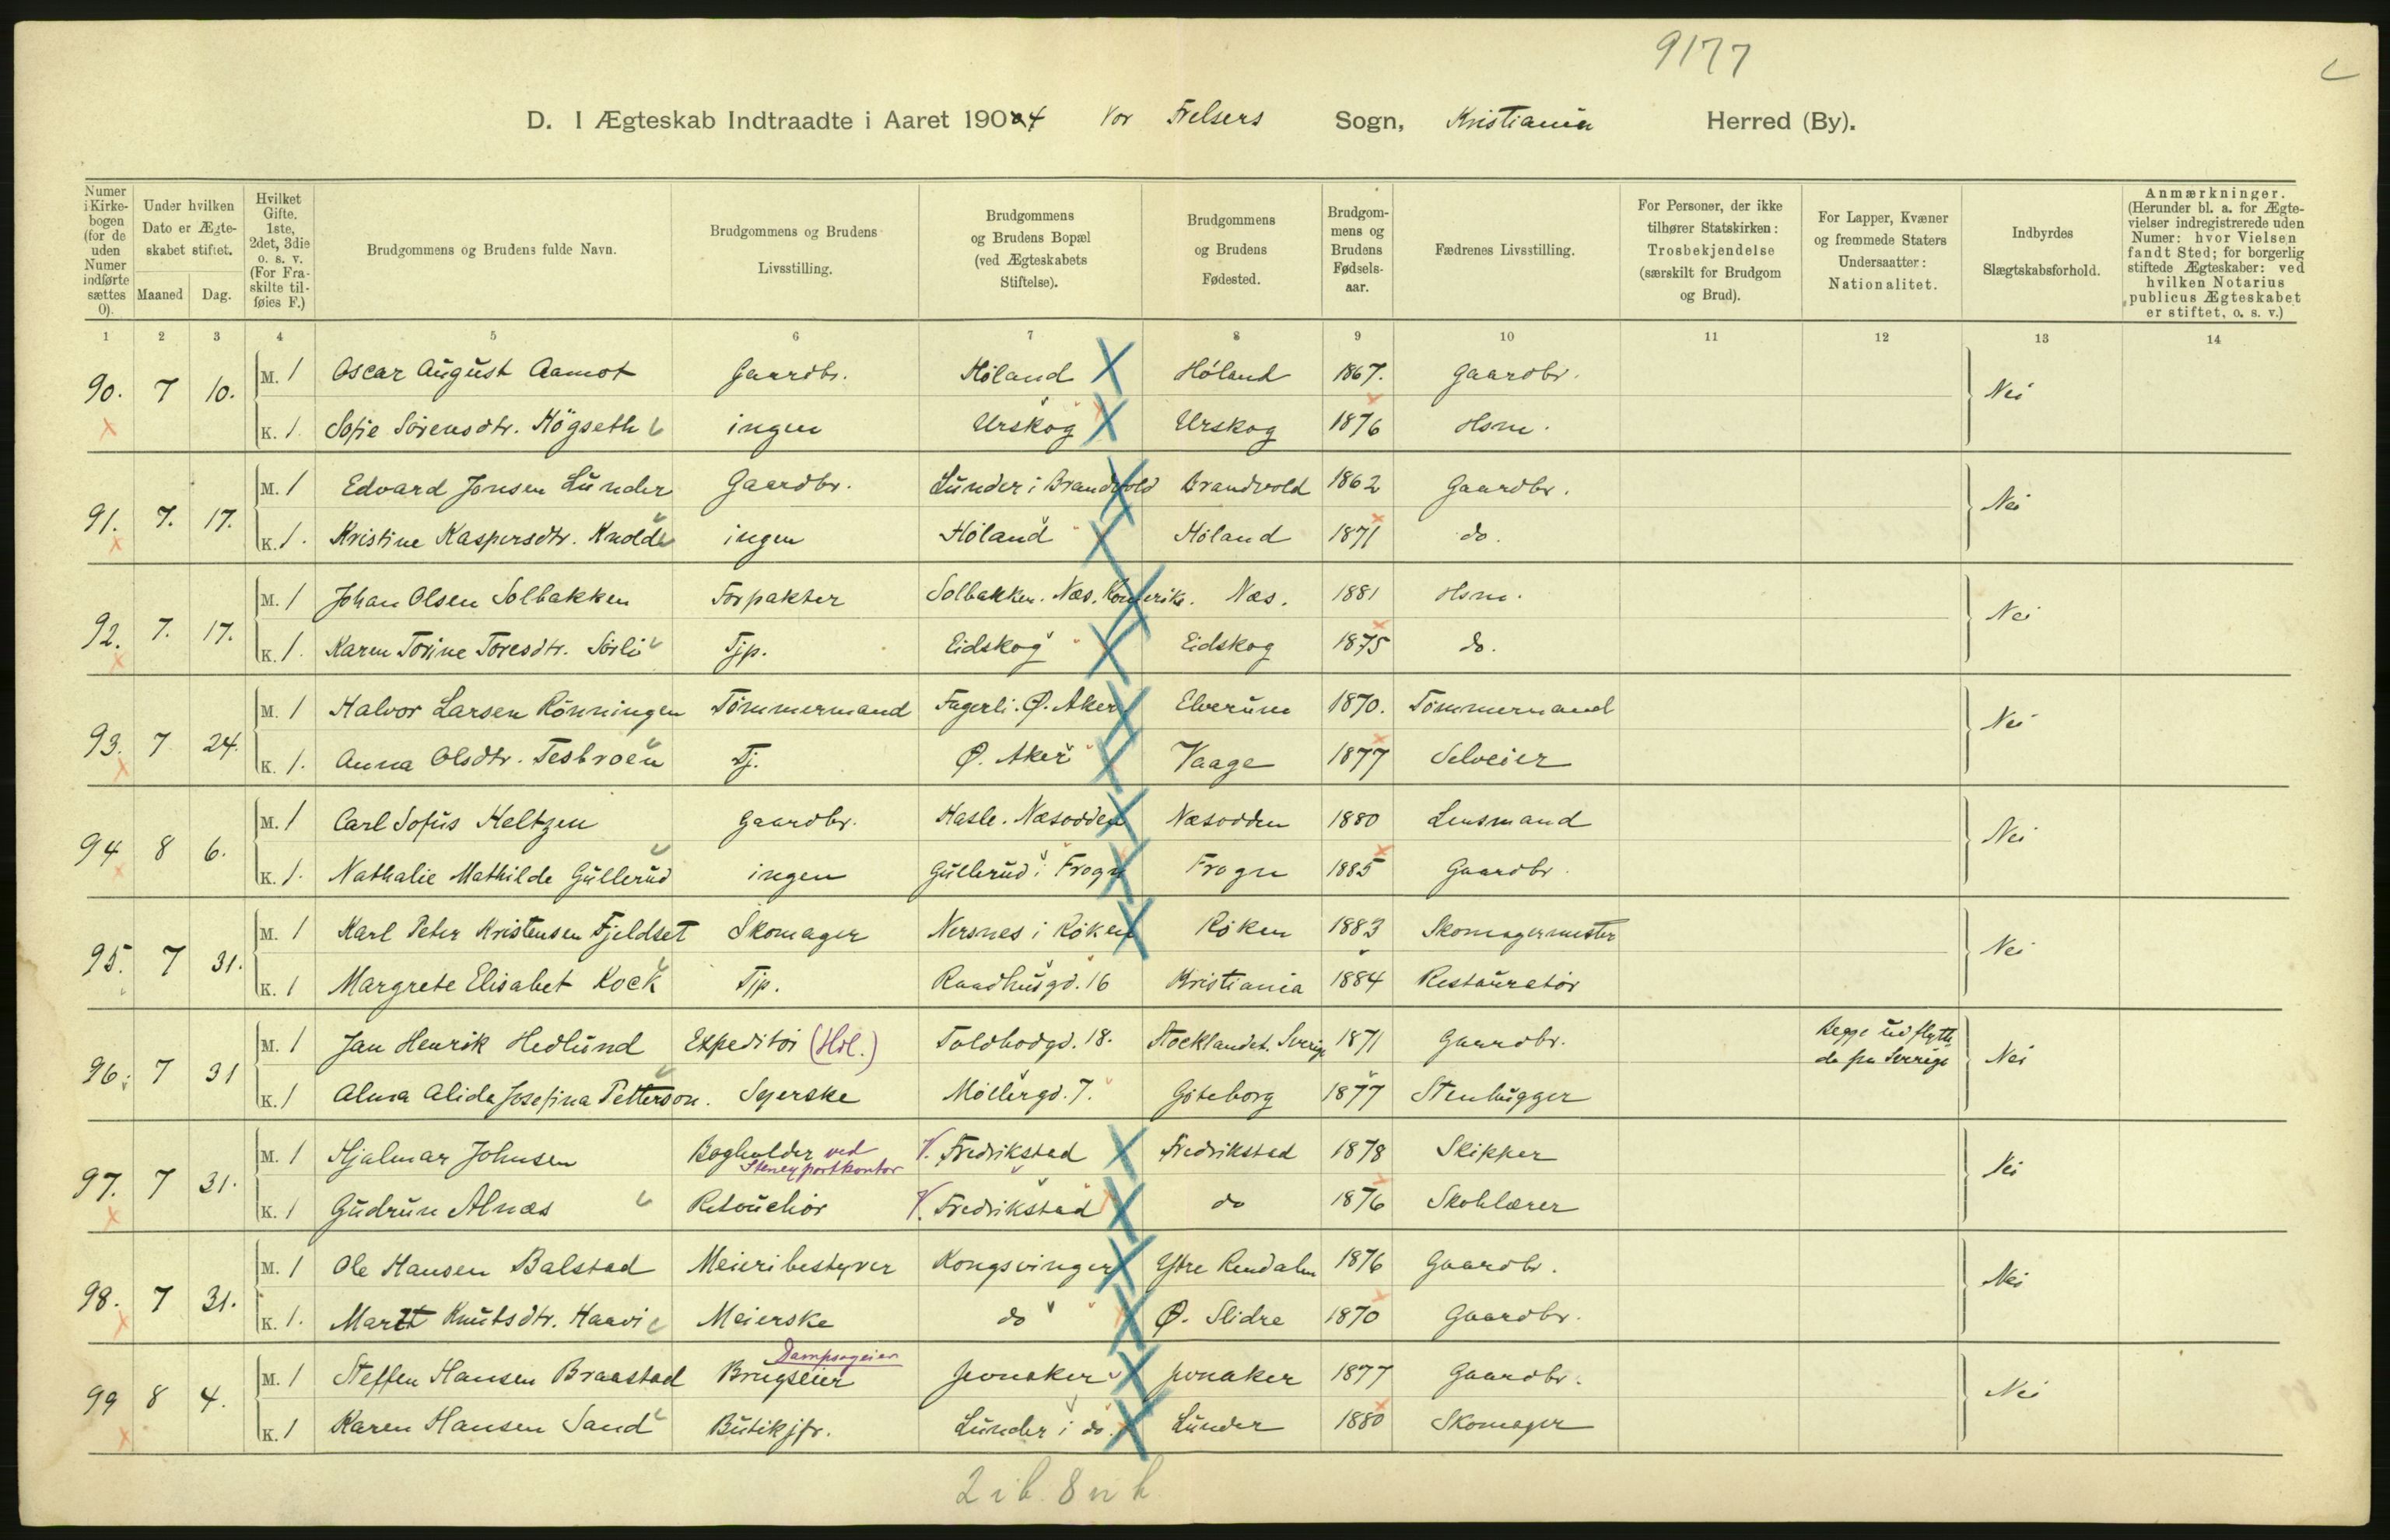 9177
D. I Ægteskab Indtraadte i Aaret 1904 Vor Frelsers Sogn, Kristiania Herred (By).
Numer i Kirkebogen (for de uden Numer indførte sættes 0).
Under hvilken Dato er Ægteskabet stiftet.
Maaned Dag.
Hvilket Gifte. 1ste, 2det, 3die o. s. v. (For Fraskilte tilføies F.)
Brudgommens og Brudens fulde Navn.
Brudgommens og Brudens Livsstilling.
Brudgommens og Brudens Bopæl (ved Ægteskabets Stiftelse).
Brudgommens og Brudens Fødested.
Brudgommens og Brudens Fødselsaar.
Fædrenes Livsstilling.
For Personer, der ikke tilhører Statskirken: Trosbekjendelse (særskilt for Brudgom og Brud).
For Lapper, Kvæner og fremmede Staters Undersaatter: Nationalitet.
Indbyrdes Slægtskabsforhold.
Anmærkninger. (Herunder bl. a. for Ægtevielser indregistrerede uden Numer: hvor Vielsen fandt Sted; for borgerlig stiftede Ægteskaber: ved hvilken Notarius publicus Ægteskabet er stiftet, o. s. v.)
1 2 3 4 5 6 7 8 9 10 11 12 13 14
90. 7 10. M. 1 Oscar August Aamot Gaardbr. Höland Höland 1867. Gaardbr. Nei
K. 1. Sofie Sörensdtr. Högseth ingen Urskog Urskog 1876 Hsm.
91. 7. 17. M. 1 Edvard Jonsen Lunder Gaardbr. Lunder i Brandvold Brandvold 1862 Gaardbr. Nei
K. 1. Kristine Kaspersdtr. Knold ingen Höland Höland 1871 do.
92. 7. 17. M. 1 Johan Olsen Solbakken Forpakter Solbakken. Næs. Romerike. Næs. 1881 Hsm. Nei
K. 1. Karen Torine Toresdtr. Sörli Tjp. Eidskog Eidskog 1875 do.
93. 7 24. M. 1 Halvor Larsen Rönningen Tömmermand Fagerli. Ø. Aker Elverum 1870. Tömmermand Nei
K. 1. Anna Olsdtr. Tesbroen Tj. Ø. Aker Vaage 1877 Selveier
94 8 6. M. 1 Carl Sofus Keltzen Gaardbr. Hasle. Næsodden Næsodden 1880 Lensmand Nei
K. 1. Nathalie Mathilde Gullerud ingen Gullerud i Frogn Frogn 1885 Gaardbr.
95. 7 31. M. 1 Karl Peter Kristensen Fjeldset Skomager Nersnes i Röken Röken 1883 Skomagermester Nei
K. 1 Margrete Elisabet Kock Tjp. Raadhusgd. 16 Kristiania 1884 Restauratör
96. 7 31 M. 1 Jan Henrik Hedlund Expeditör Toldbodgd. 18. Stocklandet. Sverige 1871 Gaardbr. Begge udflyttede fra Sverige Nei
K. 1 Alma Alida Josefina Petterson. Syerske Möllergd. 7. Göteborg 1877 Stenhugger
97. 7 31. M. 1 Hjalmar Johnsen Bogholder ved Stenexportkontor V. Fredrikstad Fredrikstad 1878 Skipper Nei
K. 1 Gudrun Alnæs Retouchör V. Fredrikstad do 1876 Skolelærer
98. 7 31. M. 1 Ole Hansen Balstad Meieribestyrer Kongsvinger Ytre Rendalen 1876 Gaardbr. Nei
K. 1. Marit Knutsdtr. Haavi Meierske do Ø. Slidre 1870 Gaardbr.
99 8 4. M. 1 Steffen Hansen Braastad Brugseier Dampsageier Jevnaker Jevnaker 1877 Gaardbr. Nei
K. 1 Karen Hansen Sand Butikjfr. Lunder i do. Lunder 1880 Skomager
2 i b. 8 u b